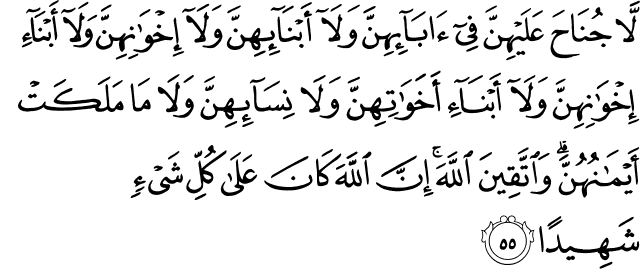 لَّا جُنَاحَ عَلَيْهِنَّ فِىٓ ءَابَآئِهِنَّ وَلَآ أَبْنَآئِهِنَّ وَلَآ إِخْوَٰنِهِنَّ وَلَآ أَبْنَآءِ
إِخْوَٰنِهِنَّ وَلَآ أَبْنَآءِ أَخَوَٰتِهِنَّ وَلَا نِسَآئِهِنَّ وَلَا مَا مَلَكَتْ
أَيْمَـٰنُهُنَّ ۗ وَٱتَّقِينَ ٱللَّهَ ۚ إِنَّ ٱللَّهَ كَانَ عَلَىٰ كُلِّ شَىْءٍ
شَهِيدًا ٥٥